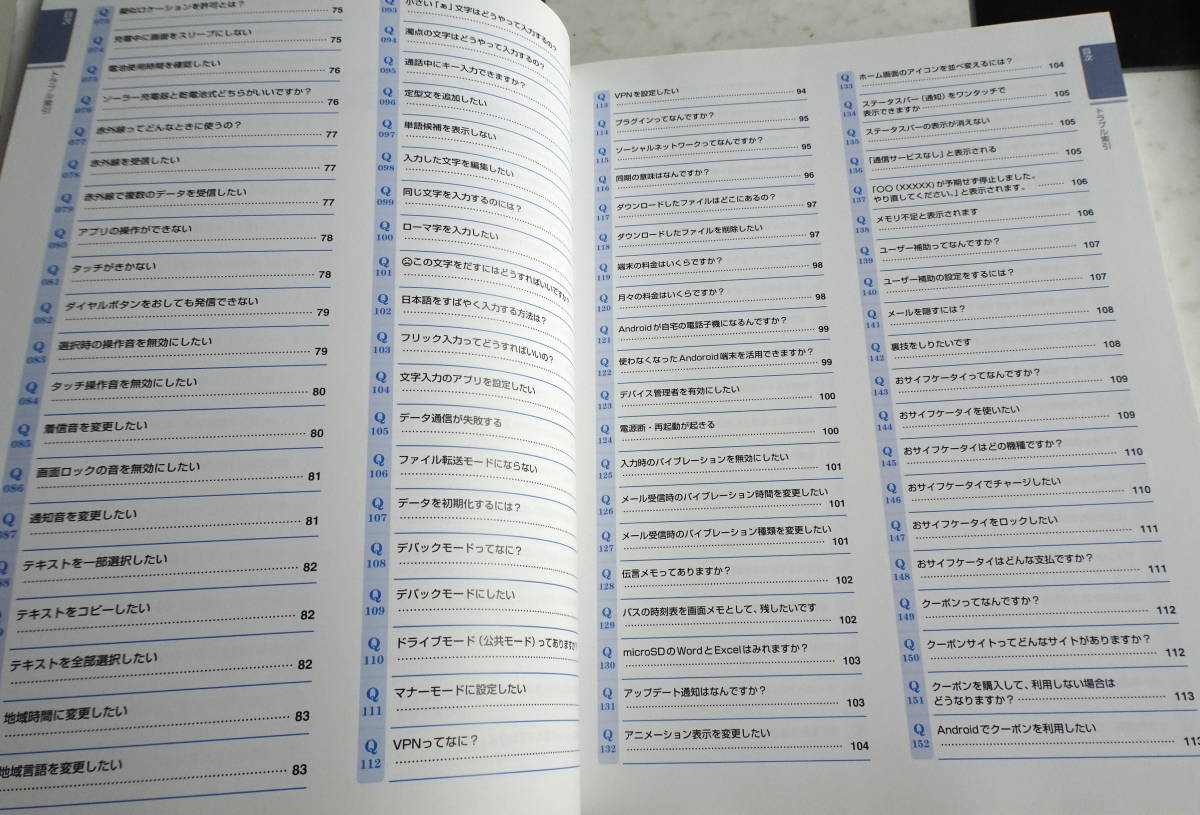 目次
トラブル索引
Q 073
擬似ロケーションを許可とは？ 75
Q 074
充電中に画面をスリープにしない 75
Q 075
電池使用時間を確認したい 76
Q 076
ソーラー充電器と乾電池式どちらがいいですか？ 76
Q 077
赤外線ってどんなときに使うの？ 77
Q 078
赤外線を受信したい 77
Q 079
赤外線で複数のデータを受信したい 77
Q 080
アプリの操作ができない 78
Q 081
タッチがきかない 78
Q 082
ダイヤルボタンをおしても発信できない 79
Q 083
選択時の操作音を無効にしたい 79
Q 084
タッチ操作音を無効にしたい 80
Q 085
着信音を変更したい 80
Q 086
画面ロックの音を無効にしたい 81
Q 087
通知音を変更したい 81
Q
テキストを一部選択したい 82
テキストをコピーしたい 82
テキストを全部選択したい 82
地域時間に変更したい 83
地域言語を変更したい 83
093
小さい「ぁ」文字はどうやって入力するの？
Q 094
濁点の文字はどうやって入力するの？
Q 095
通話中にキー入力できますか？
Q 096
定型文を追加したい
Q 097
単語候補を表示しない
Q 098
入力した文字を編集したい
Q 099
同じ文字を入力するのには？
Q 100
ローマ字を入力したい
Q 101
この文字をだすにはどうすればいいですか？
Q 102
日本語をすばやく入力する方法は？
Q 103
フリック入力ってどうすればいいの？
Q 104
文字入力のアプリを設定したい
Q 105
データ通信が失敗する
Q 106
ファイル転送モードにならない
Q 107
データを初期化するには？
Q 108
デバックモードってなに？
Q 109
デバックモードにしたい
Q 110
ドライブモード（公共モード）ってありますか
Q 111
マナーモードに設定したい
Q 112
VPNってなに？
Q 113
VPNを設定したい 94
Q 114
プラグインってなんですか？ 95
Q 115
ソーシャルネットワークってなんですか？ 95
Q 116
同期の意味はなんですか？ 96
Q 117
ダウンロードしたファイルはどこにあるの？ 97
Q 118
ダウンロードしたファイルを削除したい 97
Q 119
端末の料金はいくらですか？ 98
Q 120
月々の料金はいくらですか？ 98
Q 121
Androidが自宅の電話子機になるんですか？ 99
Q 122
使わなくなったAndoroid端末を活用できますか？ 99
Q 123
デバイス管理者を有効にしたい 100
Q 124
電源断・再起動が起きる 100
Q 125
入力時のバイブレーションを無効にしたい 101
Q 126
メール受信時のバイブレーション時間を変更したい 101
Q 127
メール受信時のバイブレーション種類を変更したい 101
Q 128
伝言メモってありますか？ 102
Q 129
バスの時刻表を画面メモとして、残したいです 102
Q 130
microSDのWordとExcelはみれますか？ 103
Q 131
アップデート通知はなんですか？ 103
Q 132
アニメーション表示を変更したい 104
Q 133
ホーム画面のアイコンを並べ変えるには？ 104
Q 134
ステータスバー（通知）をワンタッチで
表示できますか 105
Q 135
ステータスバーの表示が消えない 105
Q 136
「通信サービスなし」と表示される 105
Q 137
「〇〇（XXXXX）が予期せず停止しました。
やり直してください。」と表示されます。 106
Q 138
メモリ不足と表示されます 106
Q 139
ユーザー補助ってなんですか？ 107
Q 140
ユーザー補助の設定をするには？ 107
Q 141
メールを隠すには？ 108
Q 142
裏技をしりたいです 108
Q 143
おサイフケータイってなんですか？ 109
Q 144
おサイフケータイを使いたい 109
Q 145
おサイフケータイはどの機種ですか？ 110
Q 146
おサイフケータイでチャージしたい 110
Q 147
おサイフケータイをロックしたい 111
Q 148
おサイフケータイはどんな支払ですか？ 111
Q 149
クーポンってなんですか？ 112
Q 150
クーポンサイトってどんなサイトがありますか？ 112
Q 151
クーポンを購入して、利用しない場合は
どうなりますか？ 113
Q 152
Androidでクーポンを利用したい 113
目次
トラブル索引